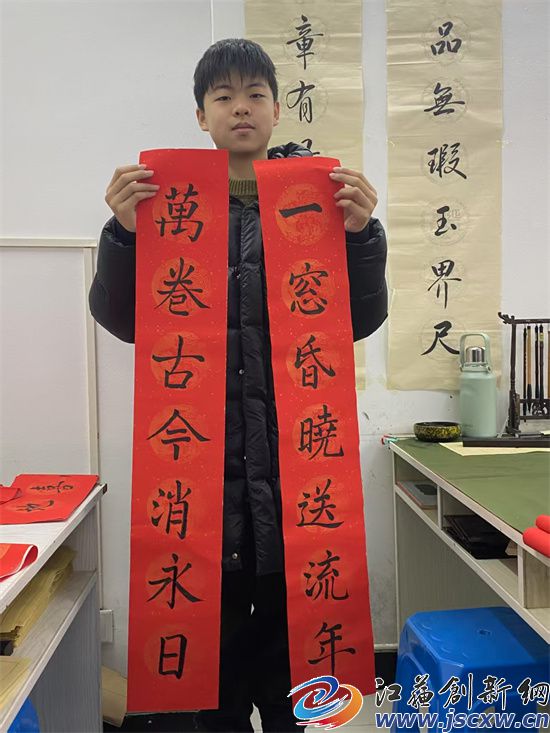 萬卷古今消永日
一窓昏曉送流年
章有
品無瑕玉界尺
江蘇創新網
www.jscxw.cn